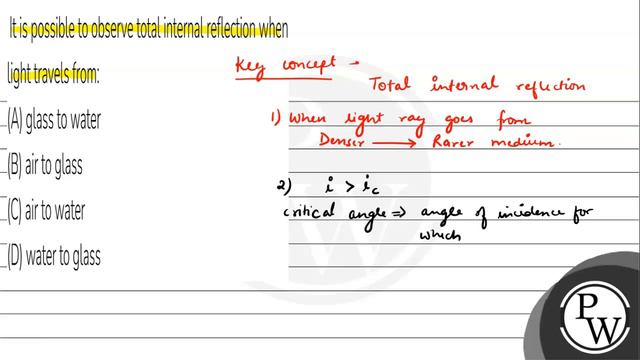 It is possible to observe total internal reflection when
light travels from:
(A) glass to water
(B) air to glass
(C) air to water
(D) water to glass
Key concept -
Total internal reflection
1) When light ray goes from
Denser → Rarer medium.
2) i > ic
critical angle ⇒ angle of incidence for
which
P
W